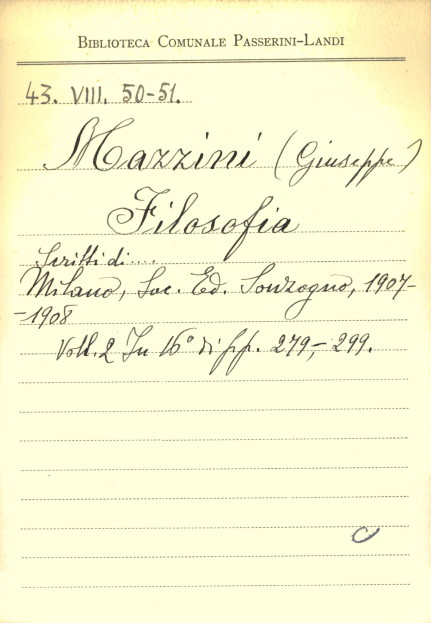 BIBLIOTECA COMUNALE PASSERINI-LANDI
43. VIII. 50-51.
Mazzini (Giuseppe)
Filosofia
Scritti di....
Milano, Soc. Ed. Sonzogno, 1907-
-1908
Voll. 2 In 16° di pp. 279,- 299.
C